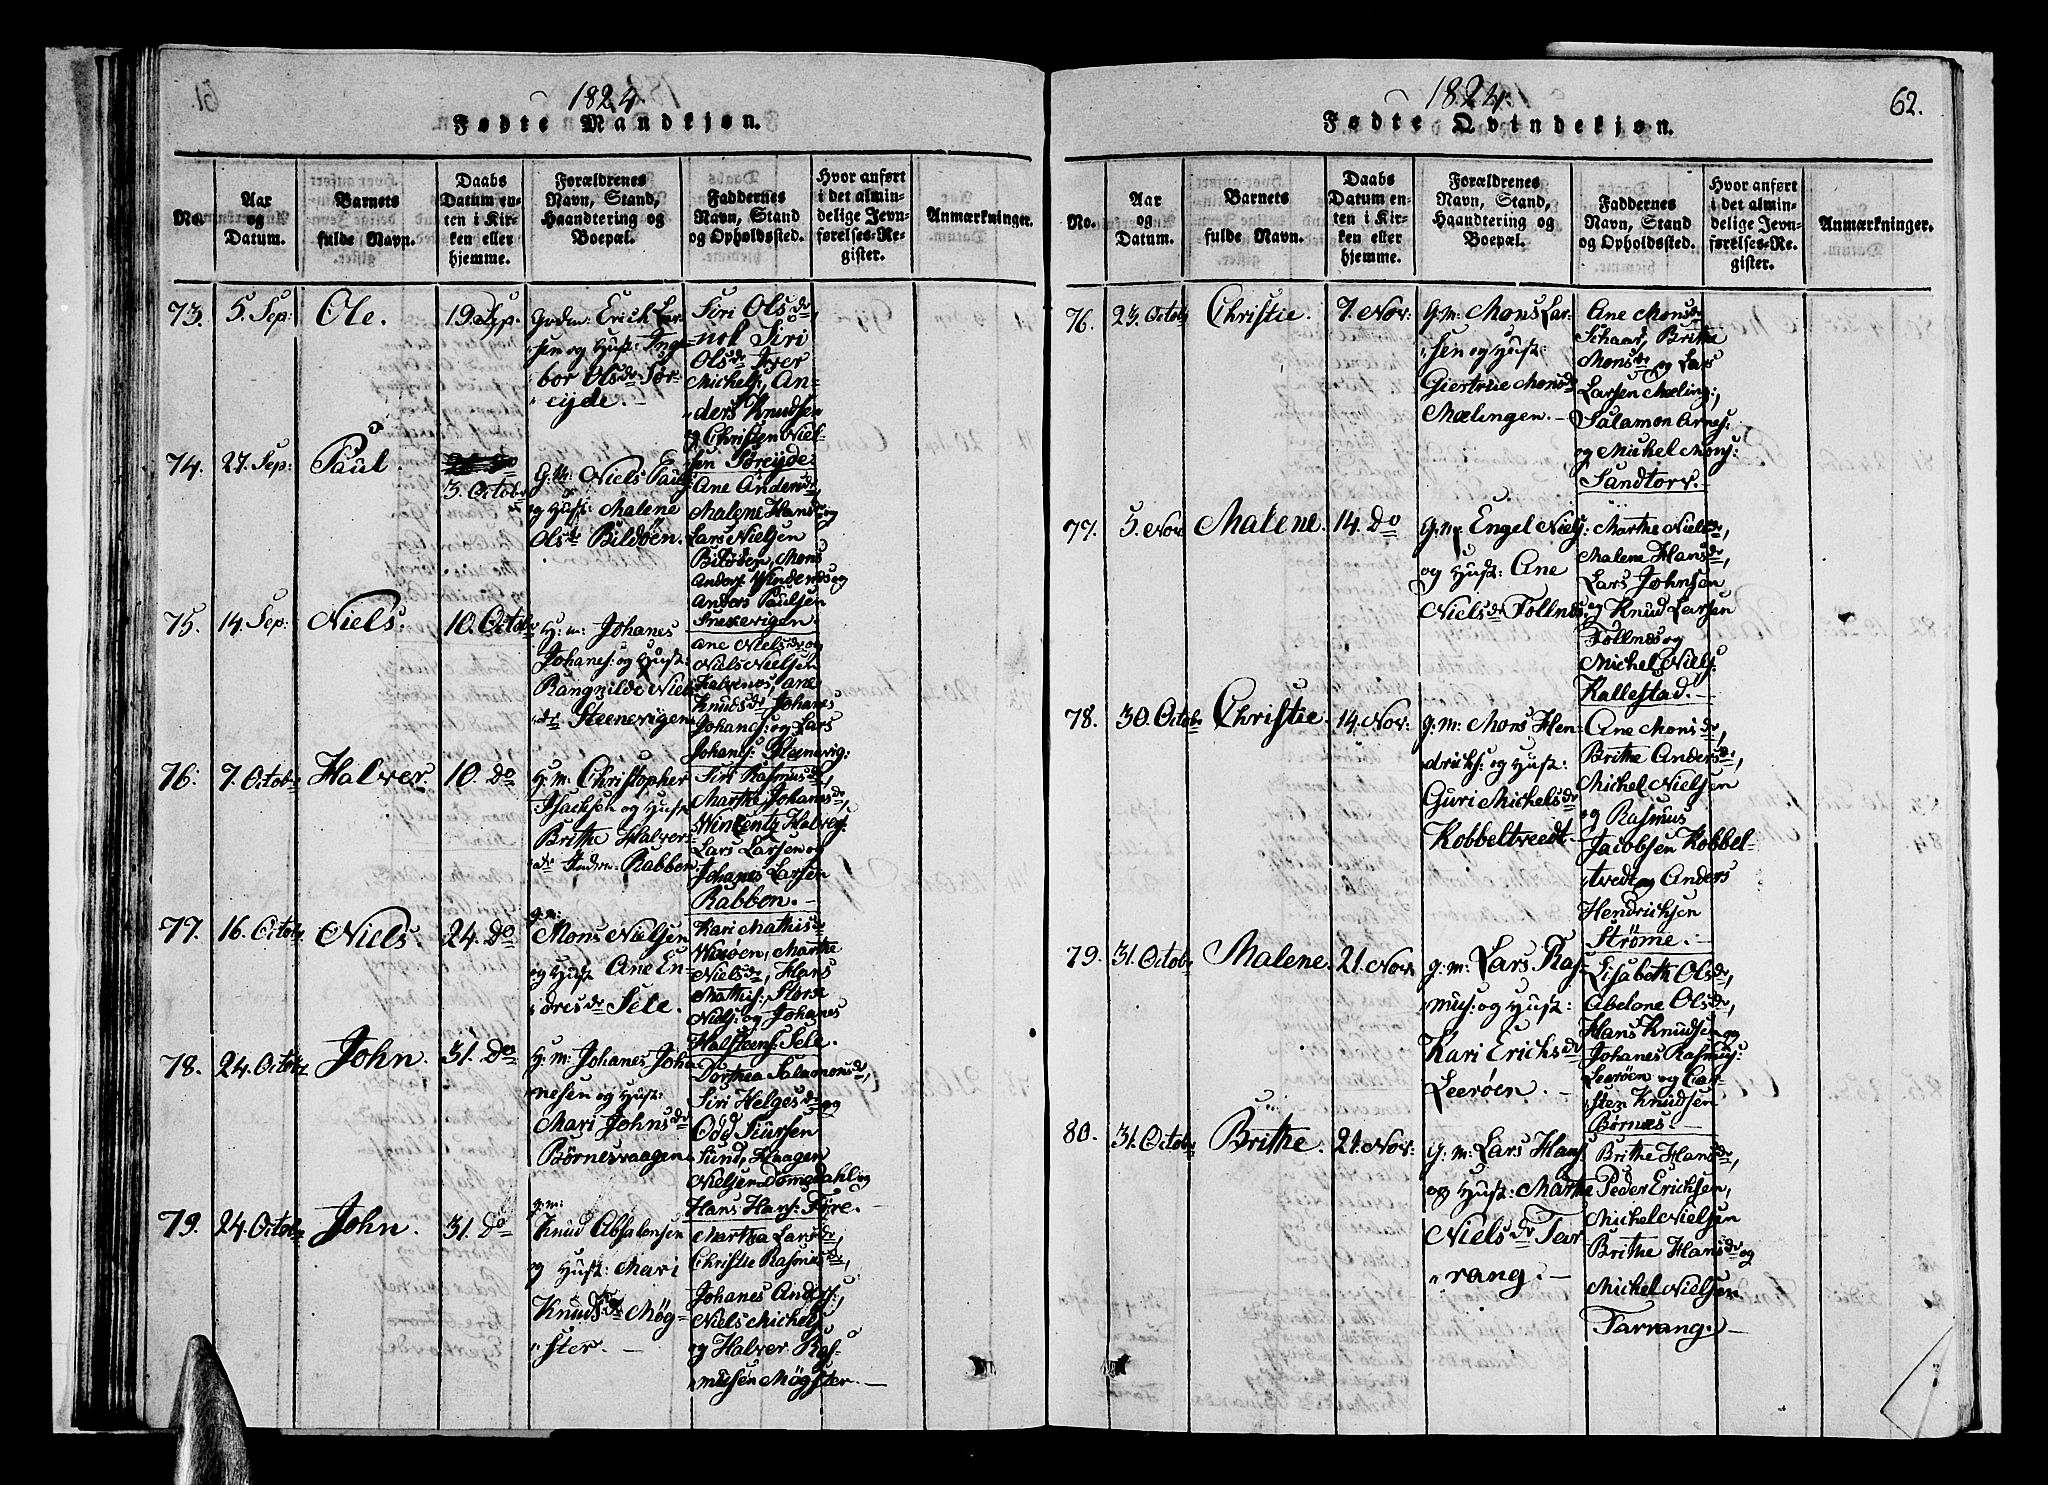 1824.
Fødte Mandkjøn.
No.
Aar
og
Datum.
Barnets
fulde Navn.
Daabs
Datum en-
ten i Kir-
ken eller
hjemme.
Forældrenes
Navn, Stand,
Haandtering og
Boepæl.
Faddernes
Navn, Stand
og Opholdssted.
Hvor anført
i det almin-
delige Jevn-
førelses-Re-
gister.
Anmærkninger.
73. 5. Sep:
Ole.
19. Sep.
Erich Lar-
sen og Hust: Inge-
bor Olsdr Sør-
eyde.
Siri Olsdr,
Siri
Olsdr Iver
Michels:, An-
ders Knudsen
og Christen Niel-
sen Søreyde.
74. 27. Sep:
Paul.
3. Octobr
G.M: Niels Pauls:
og Hust: Malene
Olsdr Bildöen.
Ane Andersdr,
Malene Hansdr og
Lars Nielsen
Bildöen, Mons
Anders: Windenes og
Anders Paulsen
Snekevigen.
75. 14. Sep:
Niels.
10. Octobr
G: m: Johanes
Johanes: og Hust:
Rangnilde Niels
dr Steenevigen
Ane Nielsdr og
Niels Nielsen
Halvenes, Ane
Knudsdr, Johanes
Johanes: og Lars
Johanes: Steenevig:
76. 7. Octobr
Halver.
10. Do
G: m: Christopher
Isacksen og Hust
Brithe Halvers-
dr Rabben
Siri Rasmusdr,
Marthe Johanesdr,
Wincentz Halvers:
Lars Larsen og
Johanes Larsen
Rabben.
77. 16. Octobr
Niels.
24. Do
g: m:
Mons Nielsen
og Hust Ane En-
dresdr Sele.
Kari Mathisdr
Wixöen, Marthe
Nielsdr, Hans
Mathis:
Niels: og Johanes
Halsteens: Sele.
78. 24. Octobr
John.
31. Do
G: m: Johanes Joha
nesen og Hust:
Mari Johnsdr
Börnesvaagen
Dorthea Salamonsdr,
Siri Helgesdr og
Odd Siursen
Sund, Haagen
Nielsen Domsdahl og
Hans Hans: Töre.
79. 24. Octobr
John.
31. Do
g: m:
Knud Absalonsen
og Hust: Mari
Knudsdr Møg-
ster.
Martha Larsdr,
Christie Rasmusdr,
Johanes Anders:,
Niels Michels:
og Halver Ras-
musen Møgster.
1824.
62.
Fødte Qvindekjøn.
No.
Aar
og
Datum.
Barnets
fulde Navn.
Daabs
Datum en-
ten i Kir-
ken eller
hjemme.
Forældrenes
Navn, Stand,
Haandtering og
Boepæl.
Faddernes
Navn, Stand
og Opholdssted.
Hvor anført
i det almin-
delige Jevn-
førelses-Re-
gister.
Anmærkninger.
76. 23. Octobr
Christie.
7. Nov:
G: m: Mons Lar-
sen og Hust:
Giertrue Monsdr
Mælingen.
Ane Monsdr
Schaar, Brithe
Monsdr og Lars
Larsen Mæling:,
Salamon Arnes:
og Michel Mons:
Sandtorv.
77. 5. Nov
Malene.
14. Do
g: m: Engel Niels:
og Hust: Ane
Nielsdr Tollnes
Marthe Nielsdr,
Malene Hansdr,
Lars Johnsen
og Knud Larsen
Tollnes og
Michel Niels:
Kallestad.
78. 30. Octobr
Christie.
14. Nov:
g: m: Mons Hen-
drichs: og Hust:
Guri Michelsdr
Kobbeltveedt
Ane Monsdr,
Brithe Andersdr,
Michel Nielsen
og Rasmus
Jacobsen Kobbel-
tvedt og Anders
Hendrichsen
Ströme.
79. 31. Octobr
Malene.
21. Nov
g: m: Lars Ras-
mus: og Hust:
Kari Erichsdr
Leeröen.
Lisabeth Olsdr,
Abelone Olsdr,
Hans Knudsen og
Johanes Rasmus:
Leeröen og Car-
sten Knudsen
Börnes.
80. 31. Octobr
Brithe.
21. Nov:
g: m: Lars Hans:
og Hust: Marthe
Nielsdr Tær
rang.
Brithe Hansdr,
Peder Erichsen,
Michel Nielsen
Brithe Hansdr og
Michel Nielsen
Tarrang.